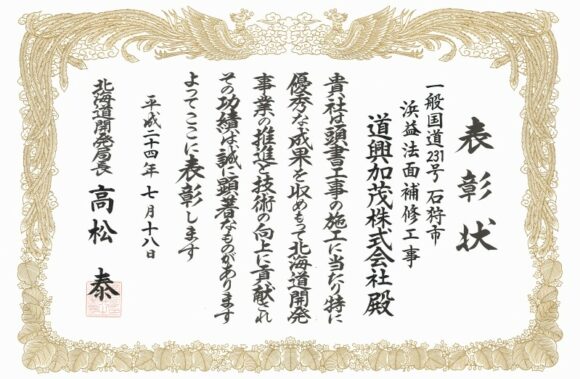 表彰状
一般国道231号 石狩市
浜益法面補修工事
道興加茂株式会社 殿
貴社は頭書工事の施工に当たり特に
優秀な成果を収めもって北海道開発
事業の推進と技術の向上に貢献され
その功績は誠に顕著なものがあります
よってここに表彰します
平成二十四年 七月十八日
北海道開発局長 高松 泰